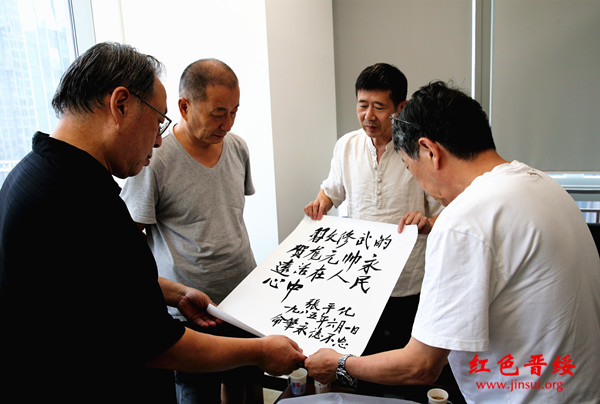 文修武的
贺龙元帅永
远活在人民
心中
张平化
一九八五年六月一日
命笔永志不忘
红色晋绥
www.jinsui.org